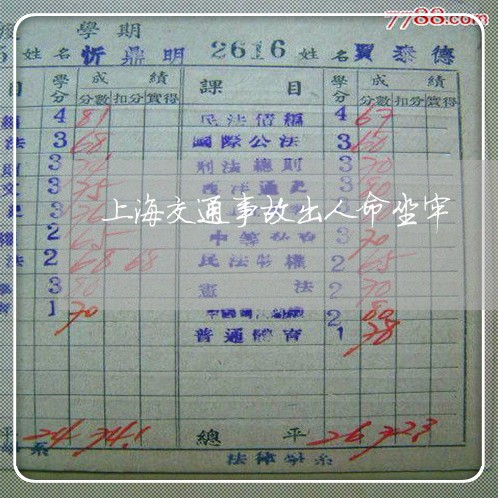 7788.com
學期
姓名 忻鼎明 2616 姓名 賈泰德
目 學分 成績 分數 扣分 實得 課目 學分 成績 分數 扣分 實得
4 81 民法債編 4 67
法 3 68 國際公法 3 60
3 刑法總則 3 70
3 75 3
3 3
權 2 65 3 70
法 2 68 68 民法物權 2 65
3 80 憲法 2 70
1 70 2 80
普通體育 1 78
上海交通事故出人命坐牢
平 24 74.1 總平 26 72.3
系 法律學系